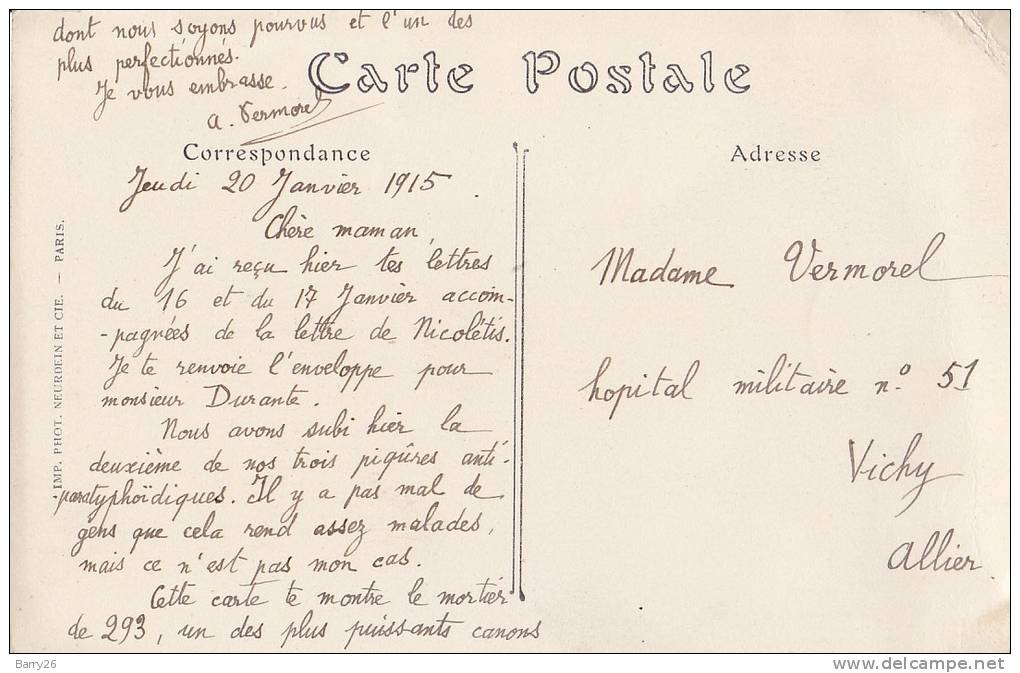 Carte Postale
Correspondance
Adresse
Jeudi 20 Janvier 1915.
Chère maman,
J'ai reçu hier tes lettres
du 16 et du 17 Janvier accom-
-pagnées de la lettre de Nicolétis.
Je te renvoie l'enveloppe pour
monsieur Durante.
Nous avons subi hier la
deuxième de nos trois piqûres anti-
-paratyphoïdiques. Il y a pas mal de
gens que cela rend assez malades,
mais ce n'est pas mon cas.
Cette carte te montre le mortier
de 293, un des plus puissants canons
dont nous soyons pourvus et l'un des
plus perfectionnés.
Je vous embrasse.
A. Vermorel
Madame Vermorel
hopital militaire n° 51
Vichy
Allier
IMP. PHOT. NEURDEIN ET CIE. — PARIS.
Barry26
www.delcampe.net